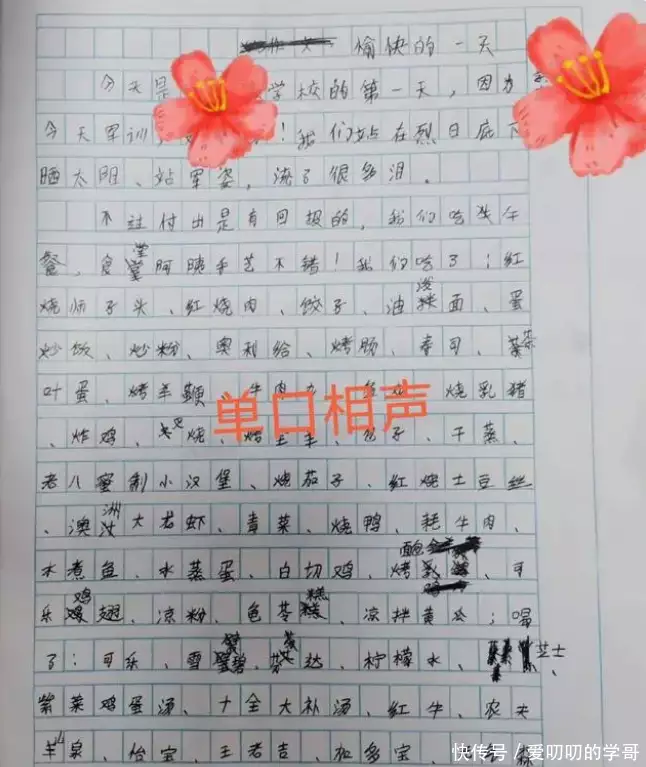 愉快的一天
今天是 学校的第一天，因为
今天军训， ！我们站在烈日底下
晒太阳、站军姿，流了很多泪。
不过付出是有回报的，我们吃失午
餐，食堂阿姨手艺不错！我们吃了：红
烧师子头、红烧肉、饺子、油泼辣面、蛋
炒饭、炒粉、奥利给、烤肠、寿司、茶
叶蛋、烤羊鞭、牛肉 烧乳猪
单口相声
、炸鸡、 烧、烤 、包子、干蒸、
老八蜜制小汉堡、烧茄子、红烧土豆丝
、澳洲大龙虾、青菜、烧鸭、耗牛肉、
水煮鱼、水蒸蛋、白切鸡、烤 、可
乐鸡翅、凉粉、龟苓糕、凉拌黄瓜；喝
了：可乐、雪碧、芬达、柠檬水、 芝士、
紫菜鸡蛋汤、十全大补汤、红牛、农夫
山泉、怡宝、王老吉、加多宝、
快传号／爱叨叨的学哥